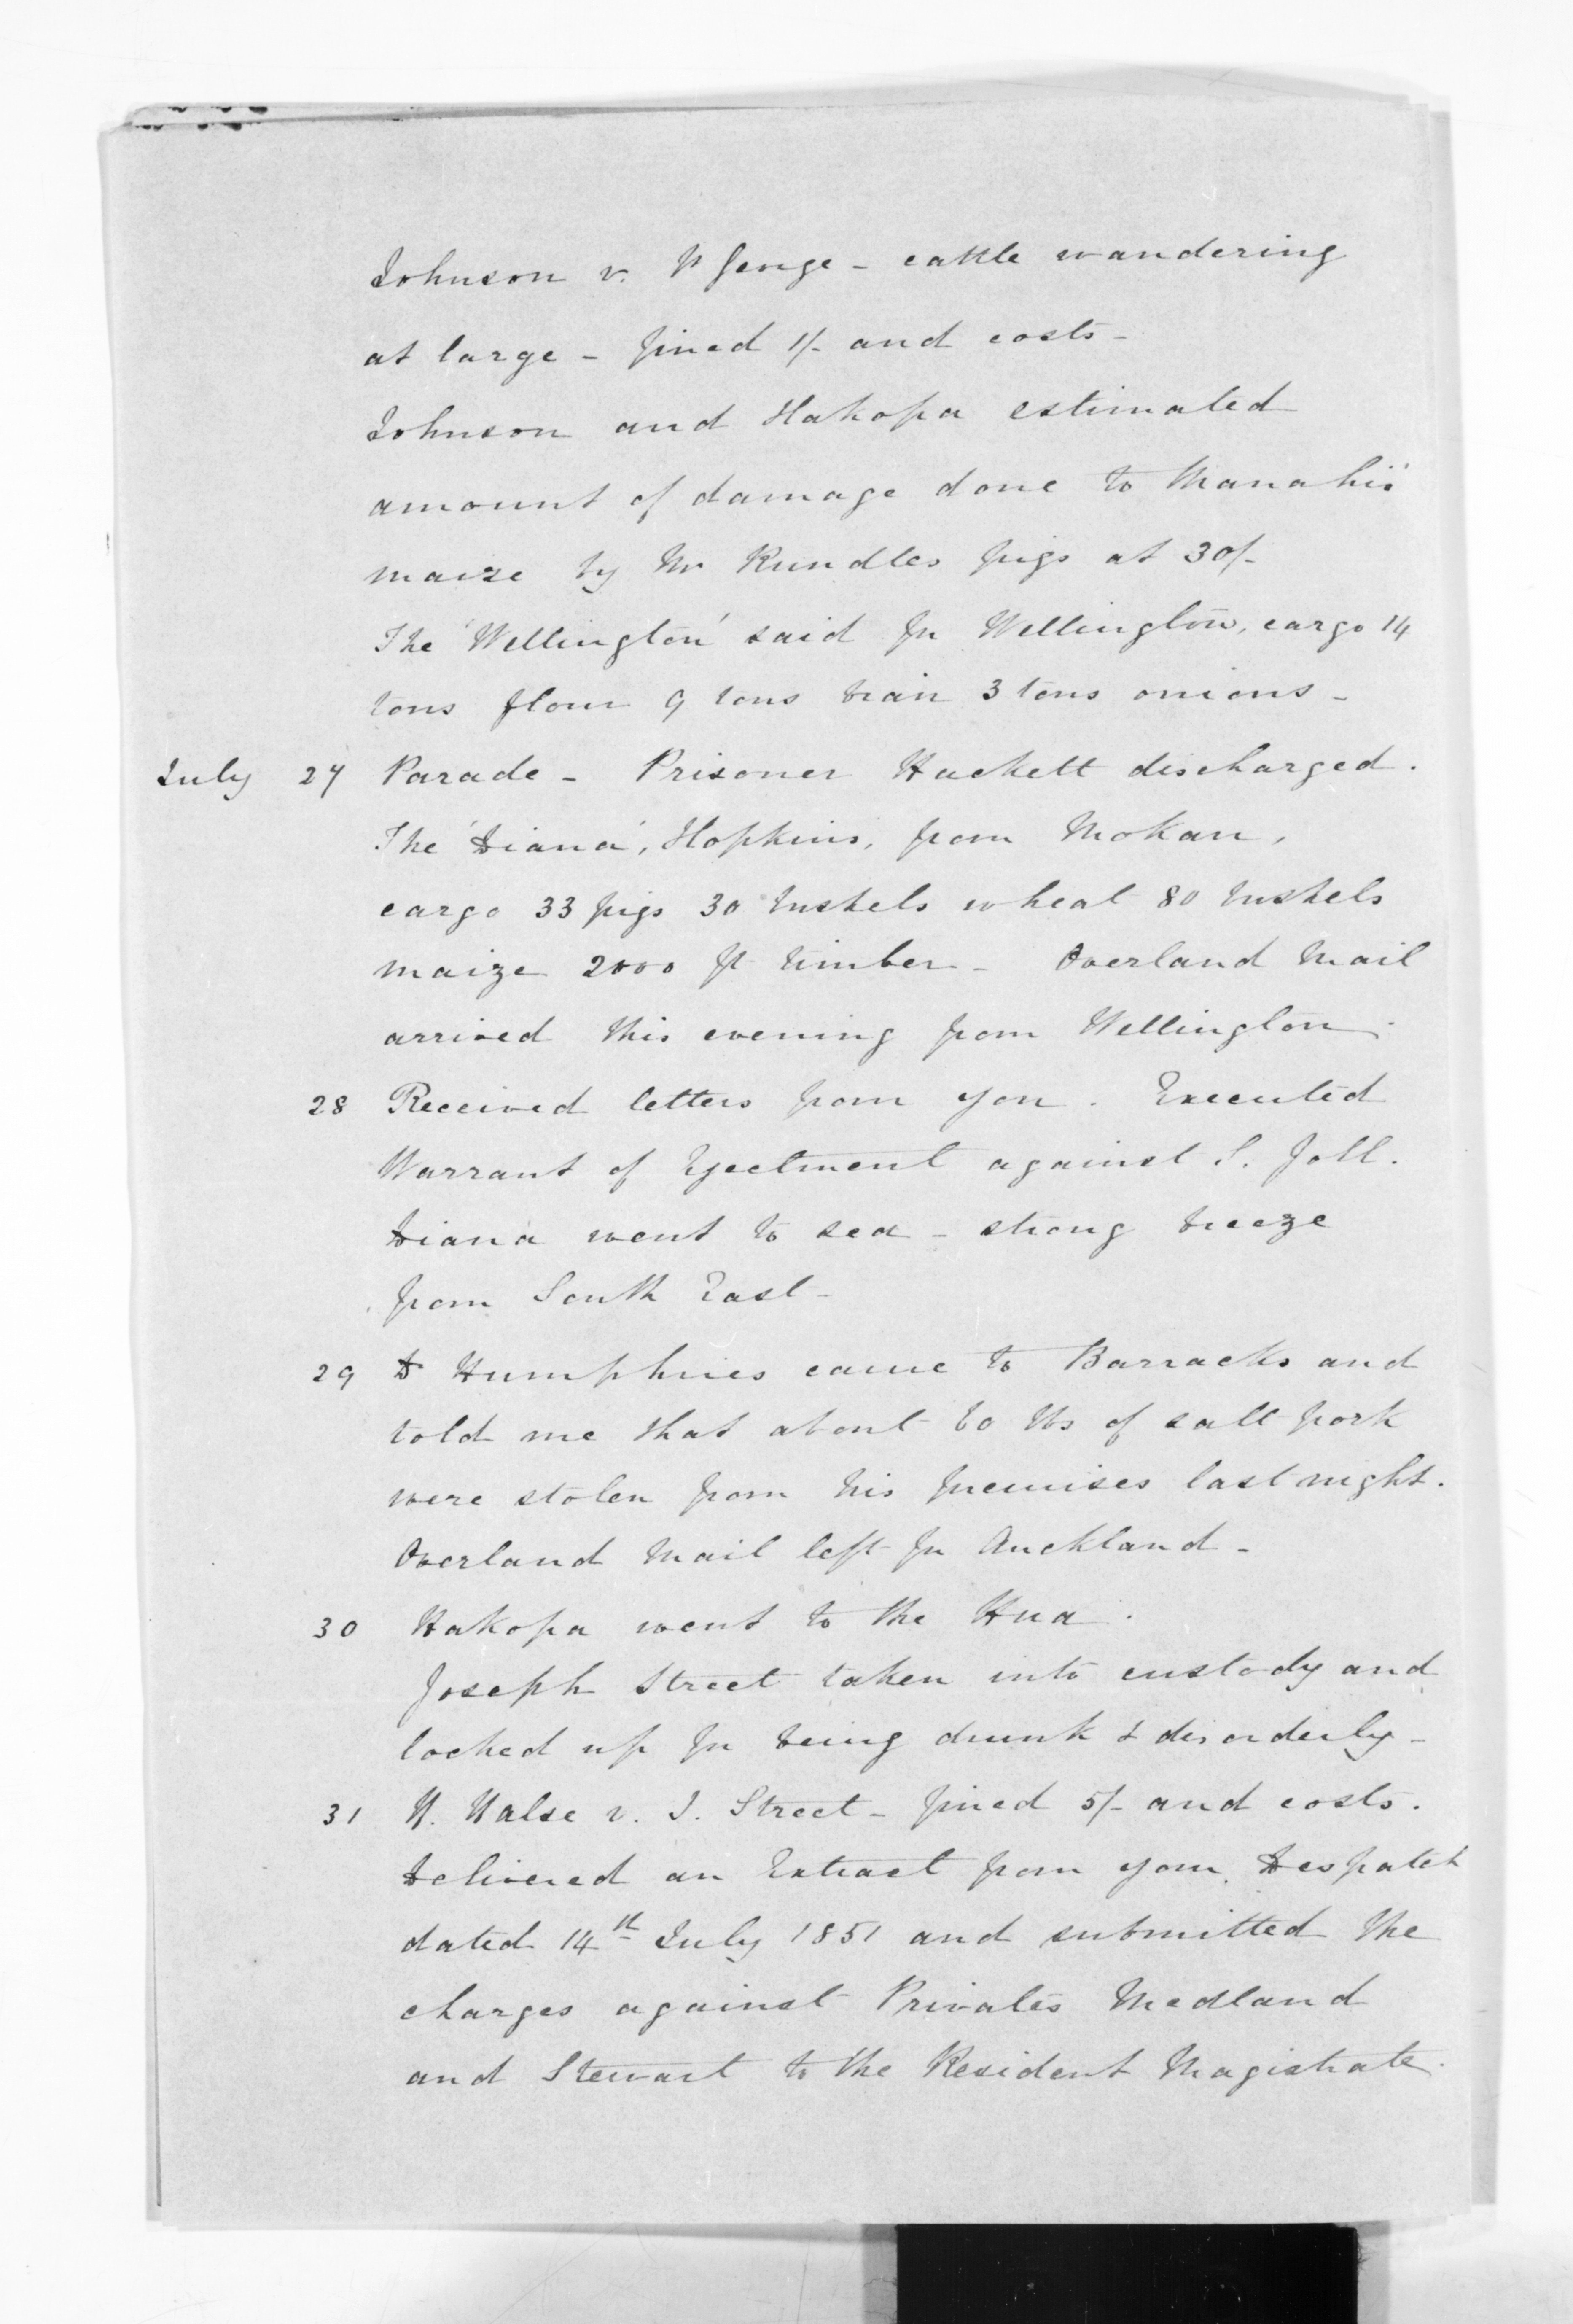 Johnson v. W George - cattle wandering
at large - fined 1/- and costs -
Johnson and Hakopa estimated
amount of damage done to Manahi's
maize by Mr Rundles pigs at 30/-
The 'Wellington' said for Wellington, cargo 14
tons flour 9 tons bran 3 tons onions -
July 27 Parade - Prisoner Hackett discharged.
The 'Diana', Hopkins, from Mokau,
cargo 33 pigs 30 bushels wheat 80 bushels
maize 2000 ft timber - Overland Mail
arrived this evening from Wellington.
28 Received letters from you. Executed
Warrant of Ejectment against S. Joll.
Diana went to sea - strong breeze
from South East -
29 Dr Humphries came to Barracks and
told me that about 60 lbs of salt pork
were stolen from his premises last night.
Overland Mail left for Auckland -
30 Hakopa went to the Hua.
Joseph Street taken into custody and
locked up for being drunk & disorderly -
31 W. Halse v. J. Street - fined 5/- and costs.
Delivered an Extract from your Despatch
dated 14th July 1851 and submitted the
charges against Privates Medland
and Stewart to the Resident Magistrate.